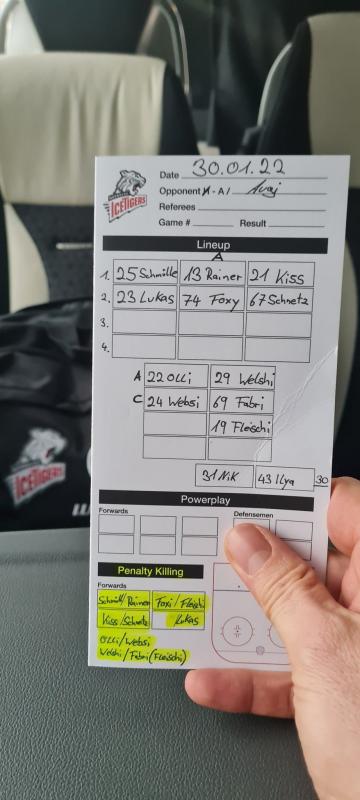 ICETIGERS
Date 30.01.22
Opponent H - A / Iraj
Referees
Game # Result
Lineup
A
1. 25 Schmölle 13 Rainer 21 Kiss
2. 23 Lukas 74 Foxy 67 Schnetz
3.
4.
A 22 Olli 29 Welshi
C 24 Websi 69 Fabri
19 Fleischi
31 Nik 43 Ilya 30
Powerplay
Forwards Defensemen
Penalty Killing
Forwards
Schmöll/Rainer Foxi/Fleischi
Kiss/Schnetz Lukas
Olli/Websi
Welshi/Fabri (Fleischi)
ICETIGERS